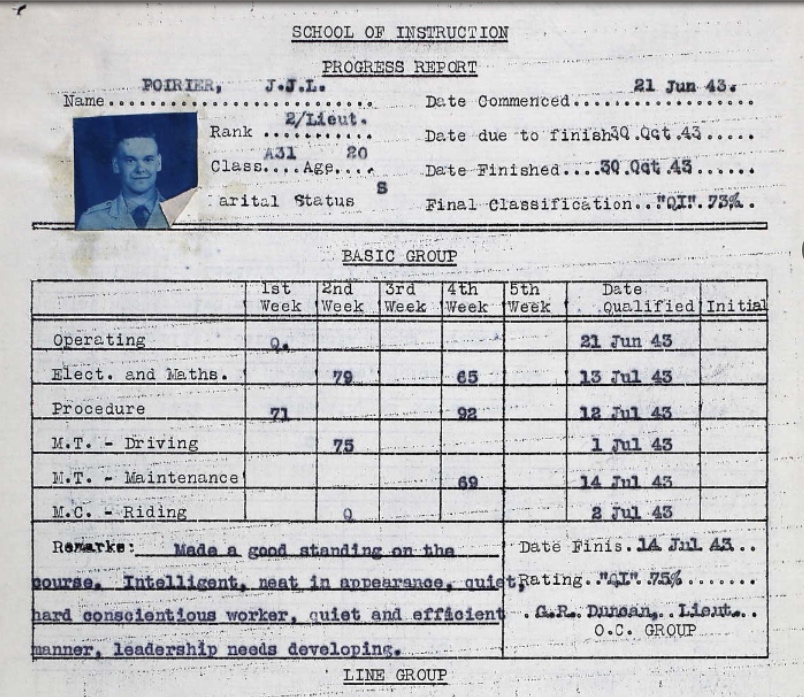 SCHOOL OF INSTRUCTION
PROGRESS REPORT
Name POIRIER, J.J.L.
Date Commenced 21 Jun 43.
Rank 2/Lieut.
Date due to finish 30 Oct 43
Class A31 Age 20
Date Finished 30 Oct 43
arital Status S
Final Classification "QI" 73%
BASIC GROUP
1st Week 2nd Week 3rd Week 4th Week 5th Week Date Qualified Initial
Operating Q. 21 Jun 43
Elect. and Maths. 79 65 13 Jul 43
Procedure 71 92 12 Jul 43
M.T. - Driving 75 1 Jul 43
M.T. - Maintenance 69 14 Jul 43
M.C. - Riding Q 2 Jul 43
Remarks: Made a good standing on the
course. Intelligent, neat in appearance, quiet,
hard conscientious worker, quiet and efficient
manner, leadership needs developing.
Date Finis. 14 Jul 43
Rating "QI" 75%
G.R. Duncan, Lieut.
O.C. GROUP
LINE GROUP